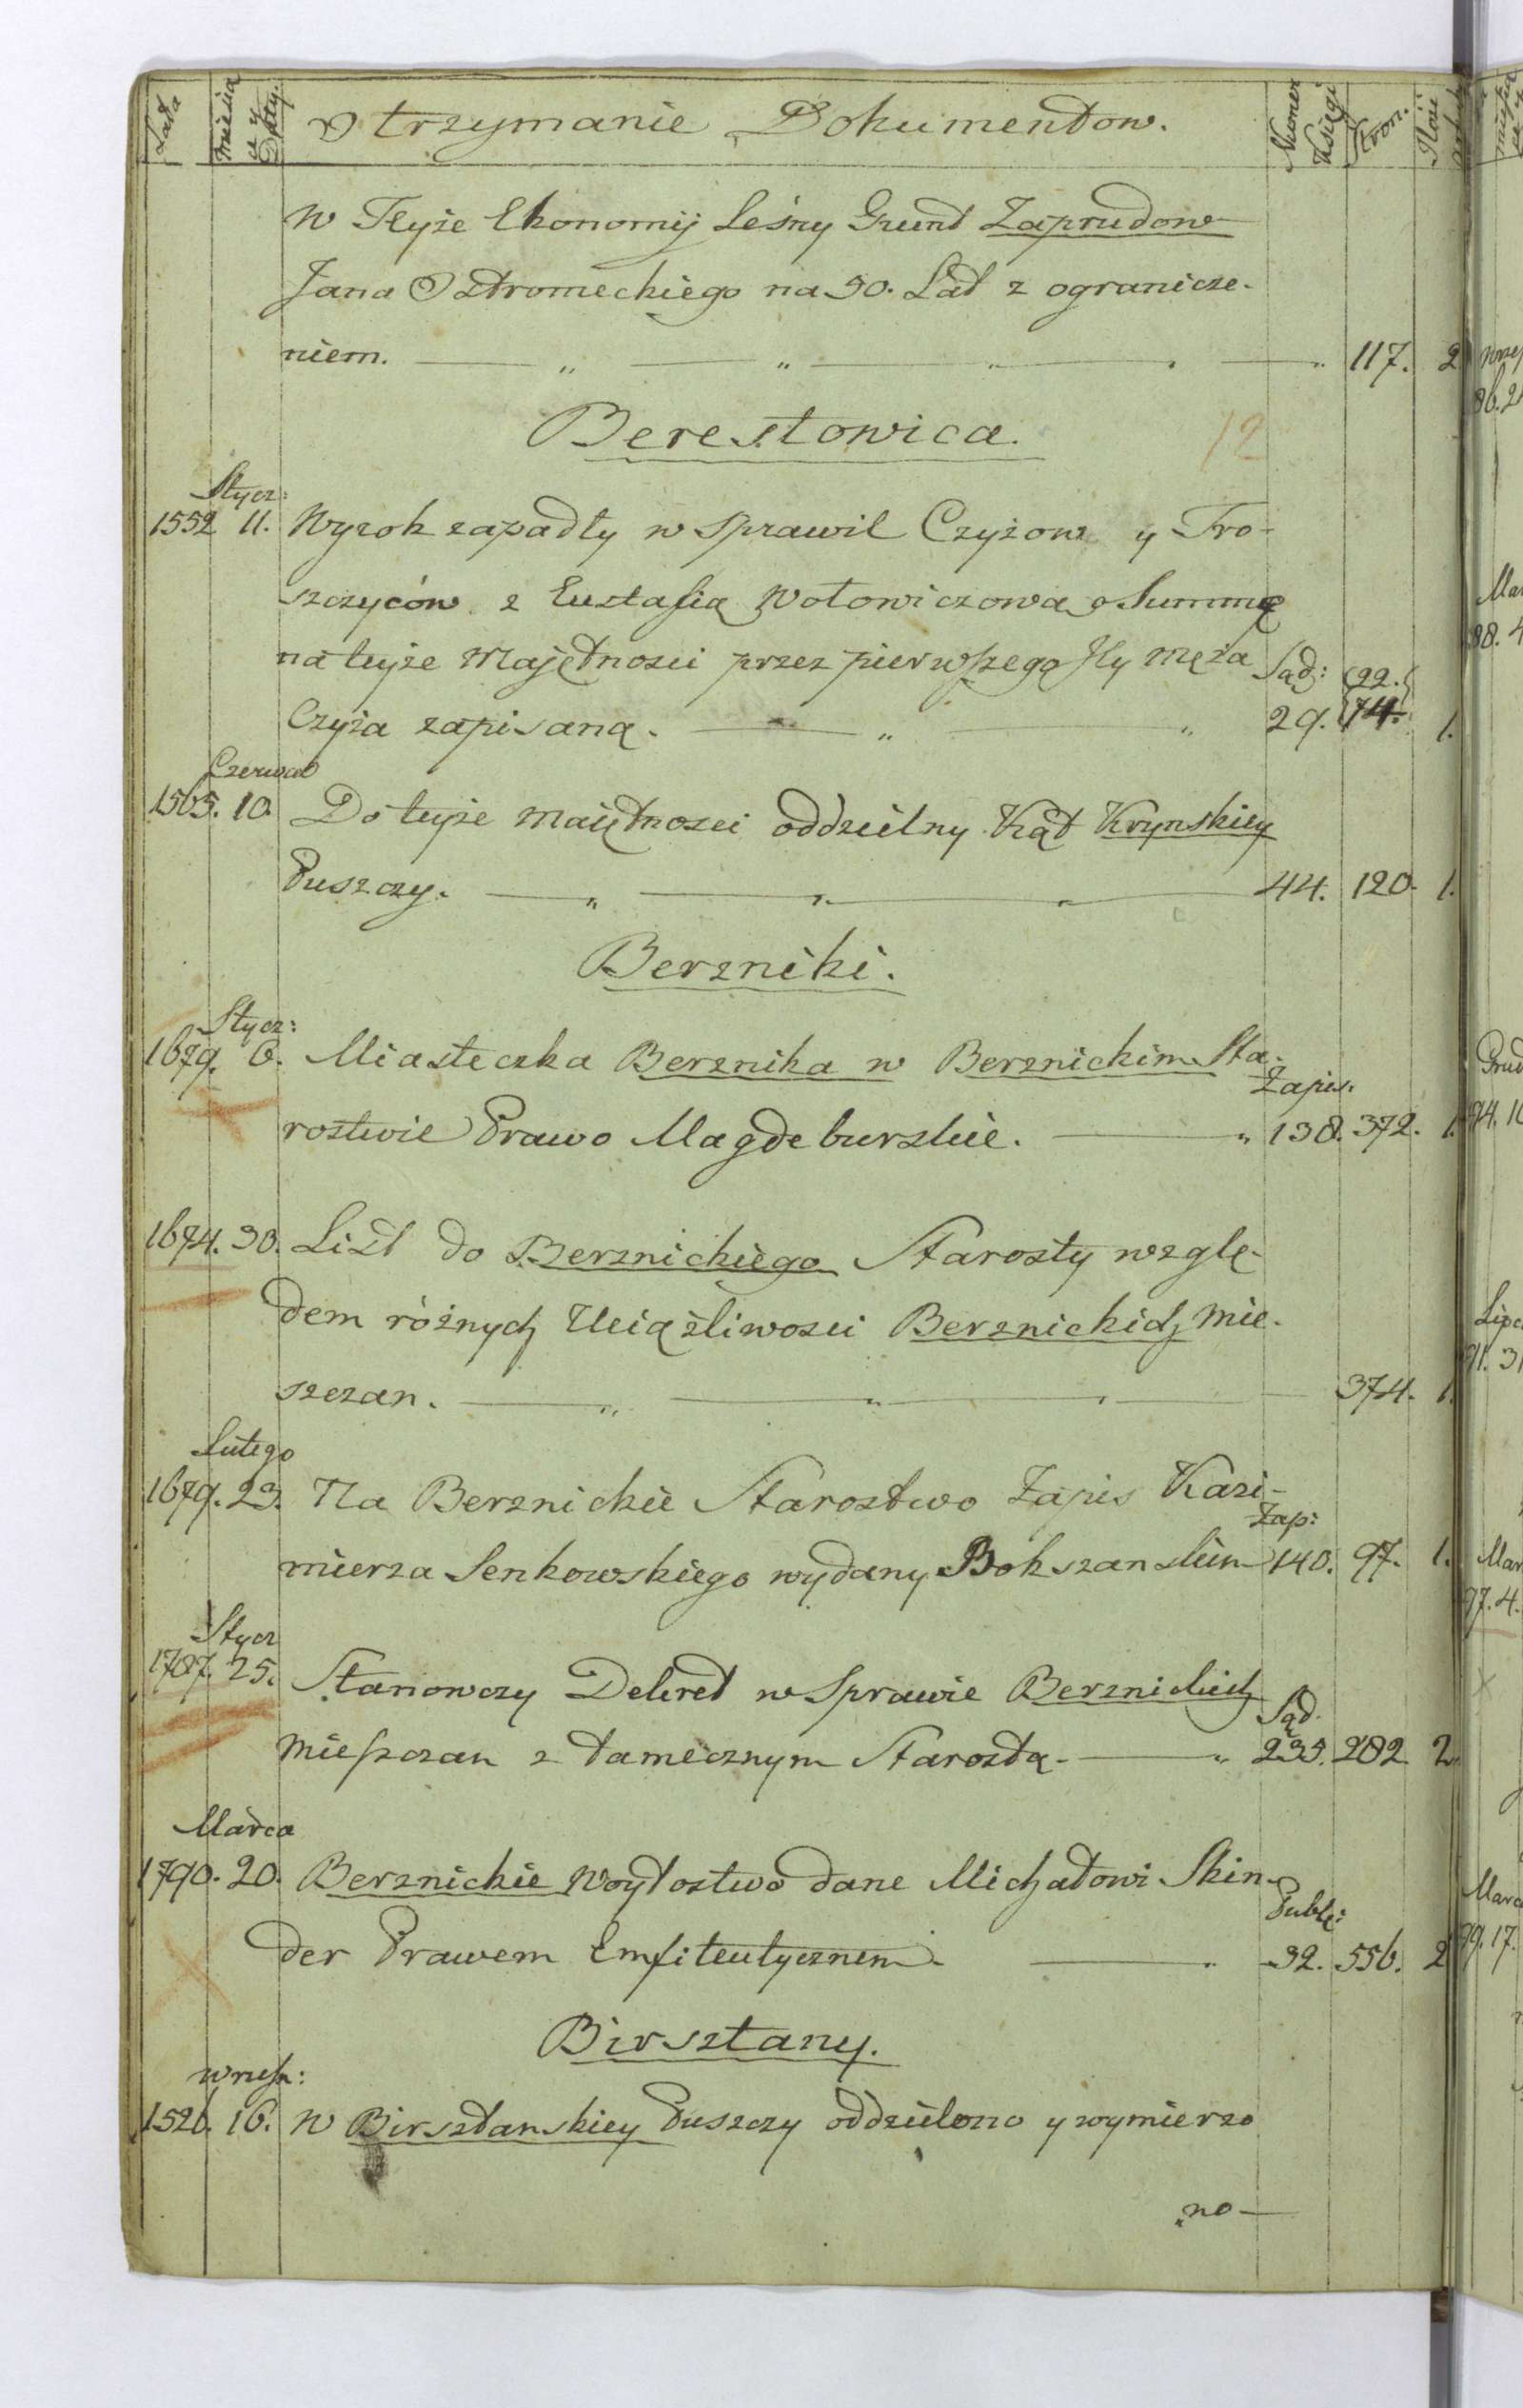 Lata
Miesiąca y Daty.
Otrzymanie Dokumentow.
Numer Księgi
Stron:
Ilość
w Teyże Ekonomij Leśny Grunt Zaprudow
Jana Ostromeckiego na 50. Lat z ogranicze-
niem. 117. 2
Berestowica.
12
Stycz:
1552 11. Wyrok zapadły w sprawie Czyżow y Tro-
szczyców z Eustasią Wołowiczową o Summę
na teyże Majętnosci przez pierwszego Jey męża Sąd: 22.
Czyża zapisaną. 29. 74. 1.
Czerwca
1565. 10. Do teyże maiętnosci oddzielny Kąt Krynskiey
Puszczy. 44. 120. 1.
Berzniki.
Stycz:
1679. 6. Miasteczka Berznika w Berznickim Sta-
Zapis:
rostwie Prawo Magdeburskie. 138. 372. 1.
1674. 30. List do Bernickiego Starosty wzglę-
dem różnych Uciążliwosci Berznickich Mie-
szczan. 374. 1.
Lutego
1679. 23. Na Berznickie Starostwo Zapis Kazi-
Zap:
mierza Senkowskiego wydany Bokszanskim 140. 97. 1.
Stycz
1787. 25. Stanowczy Dekret w Sprawie Berznickich
Sąd.
Mieszczan z tamecznym Starostą. 235. 282. 2.
Marca
1790. 20. Berznickie Woytostwo dane Michałowi Skin-
Publ:
der Prawem Emfiteutycznem. 32. 556. 2
Birsztany.
wrześ:
1526. 16. W Birsztanskiey Puszczy oddzielono y wymierzo
no